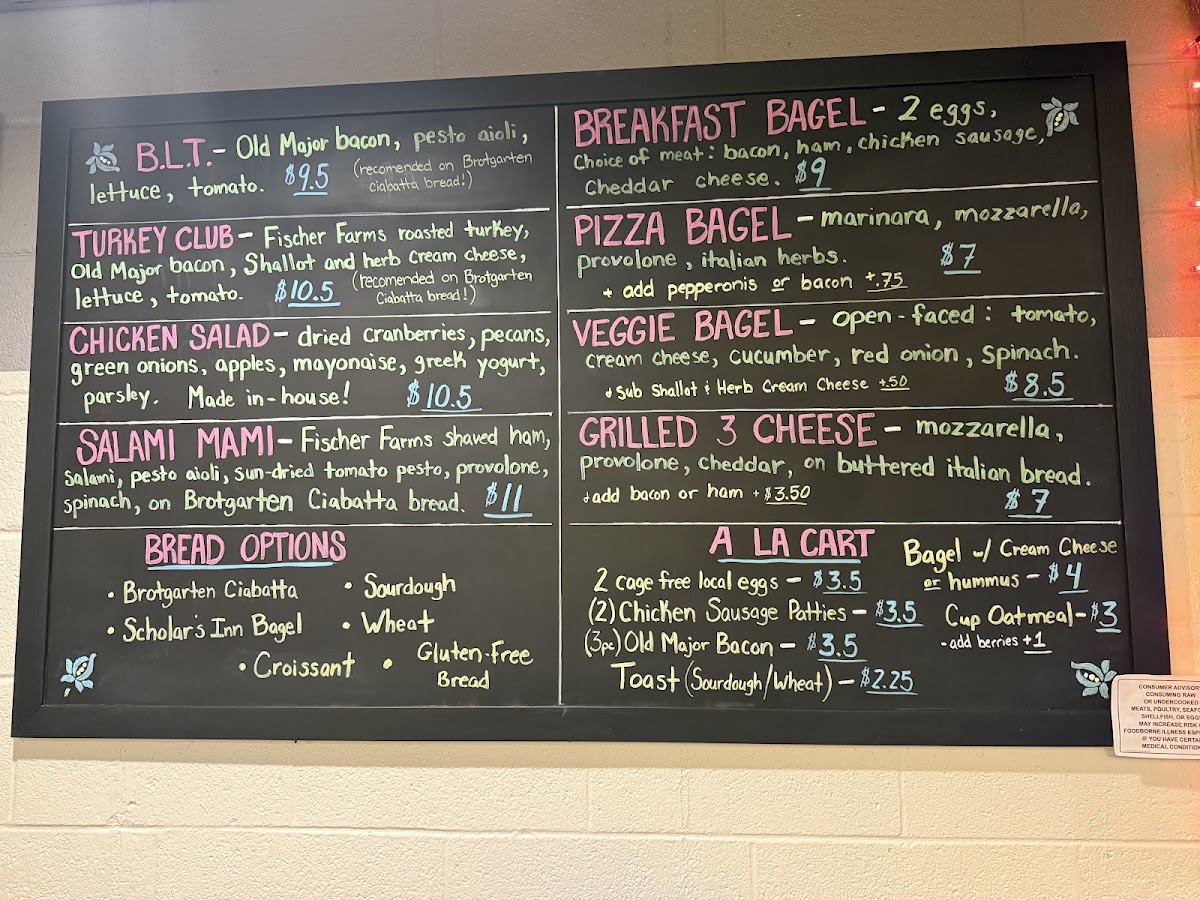 B.L.T. - Old Major bacon, pesto aioli,
lettuce, tomato. $9.5
(recomended on Brotgarten
ciabatta bread!)
TURKEY CLUB - Fischer Farms roasted turkey,
Old Major bacon, Shallot and herb cream cheese,
lettuce, tomato. $10.5
(recomended on Brotgarten
Ciabatta bread!)
CHICKEN SALAD - dried cranberries, pecans,
green onions, apples, mayonaise, greek yogurt,
parsley. Made in-house! $10.5
SALAMI MAMI - Fischer Farms shaved ham,
Salami, pesto aioli, sun-dried tomato pesto, provolone,
spinach, on Brotgarten Ciabatta bread. $11
BREAD OPTIONS
• Brotgarten Ciabatta • Sourdough
• Scholar's Inn Bagel • Wheat
• Croissant • Gluten-Free
Bread
BREAKFAST BAGEL - 2 eggs,
Choice of meat: bacon, ham, chicken sausage,
Cheddar cheese. $9
PIZZA BAGEL - marinara, mozzarella,
provolone, italian herbs. $7
+ add pepperonis or bacon +.75
VEGGIE BAGEL - open-faced: tomato,
cream cheese, cucumber, red onion, spinach.
+ Sub Shallot & Herb Cream Cheese +.50 $8.5
GRILLED 3 CHEESE - mozzarella,
provolone, cheddar, on buttered italian bread.
+ add bacon or ham + $3.50 $7
A LA CART
2 cage free local eggs - $3.5
(2) Chicken Sausage Patties - $3.5
(3pc) Old Major Bacon - $3.5
Toast (Sourdough/Wheat) - $2.25
Bagel w/ Cream Cheese
or hummus - $4
Cup Oatmeal - $3
- add berries +1
CONSUMER ADVISORY
CONSUMING RAW
OR UNDERCOOKED
MEATS, POULTRY,
SHELLFISH, OR
MAY INCREASE RISK
FOODBORNE ILLNESS
IF YOU HAVE
MEDICAL